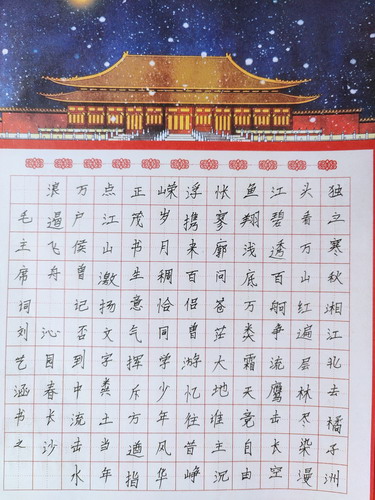 独立寒秋湘江北去橘子洲
头看万山红遍层林尽染漫
江碧透百舸争流鹰击长空
鱼翔浅底万类霜天竞自由
怅寥廓问苍茫大地谁主沉
浮携来百侣曾游忆往昔峥
嵘岁月稠恰同学少年风华
正茂书生意气挥斥方遒指
点江山激扬文字粪土当年
万户侯曾记否到中流击水
浪遏飞舟 沁园春长沙
毛主席词刘艺涵书之